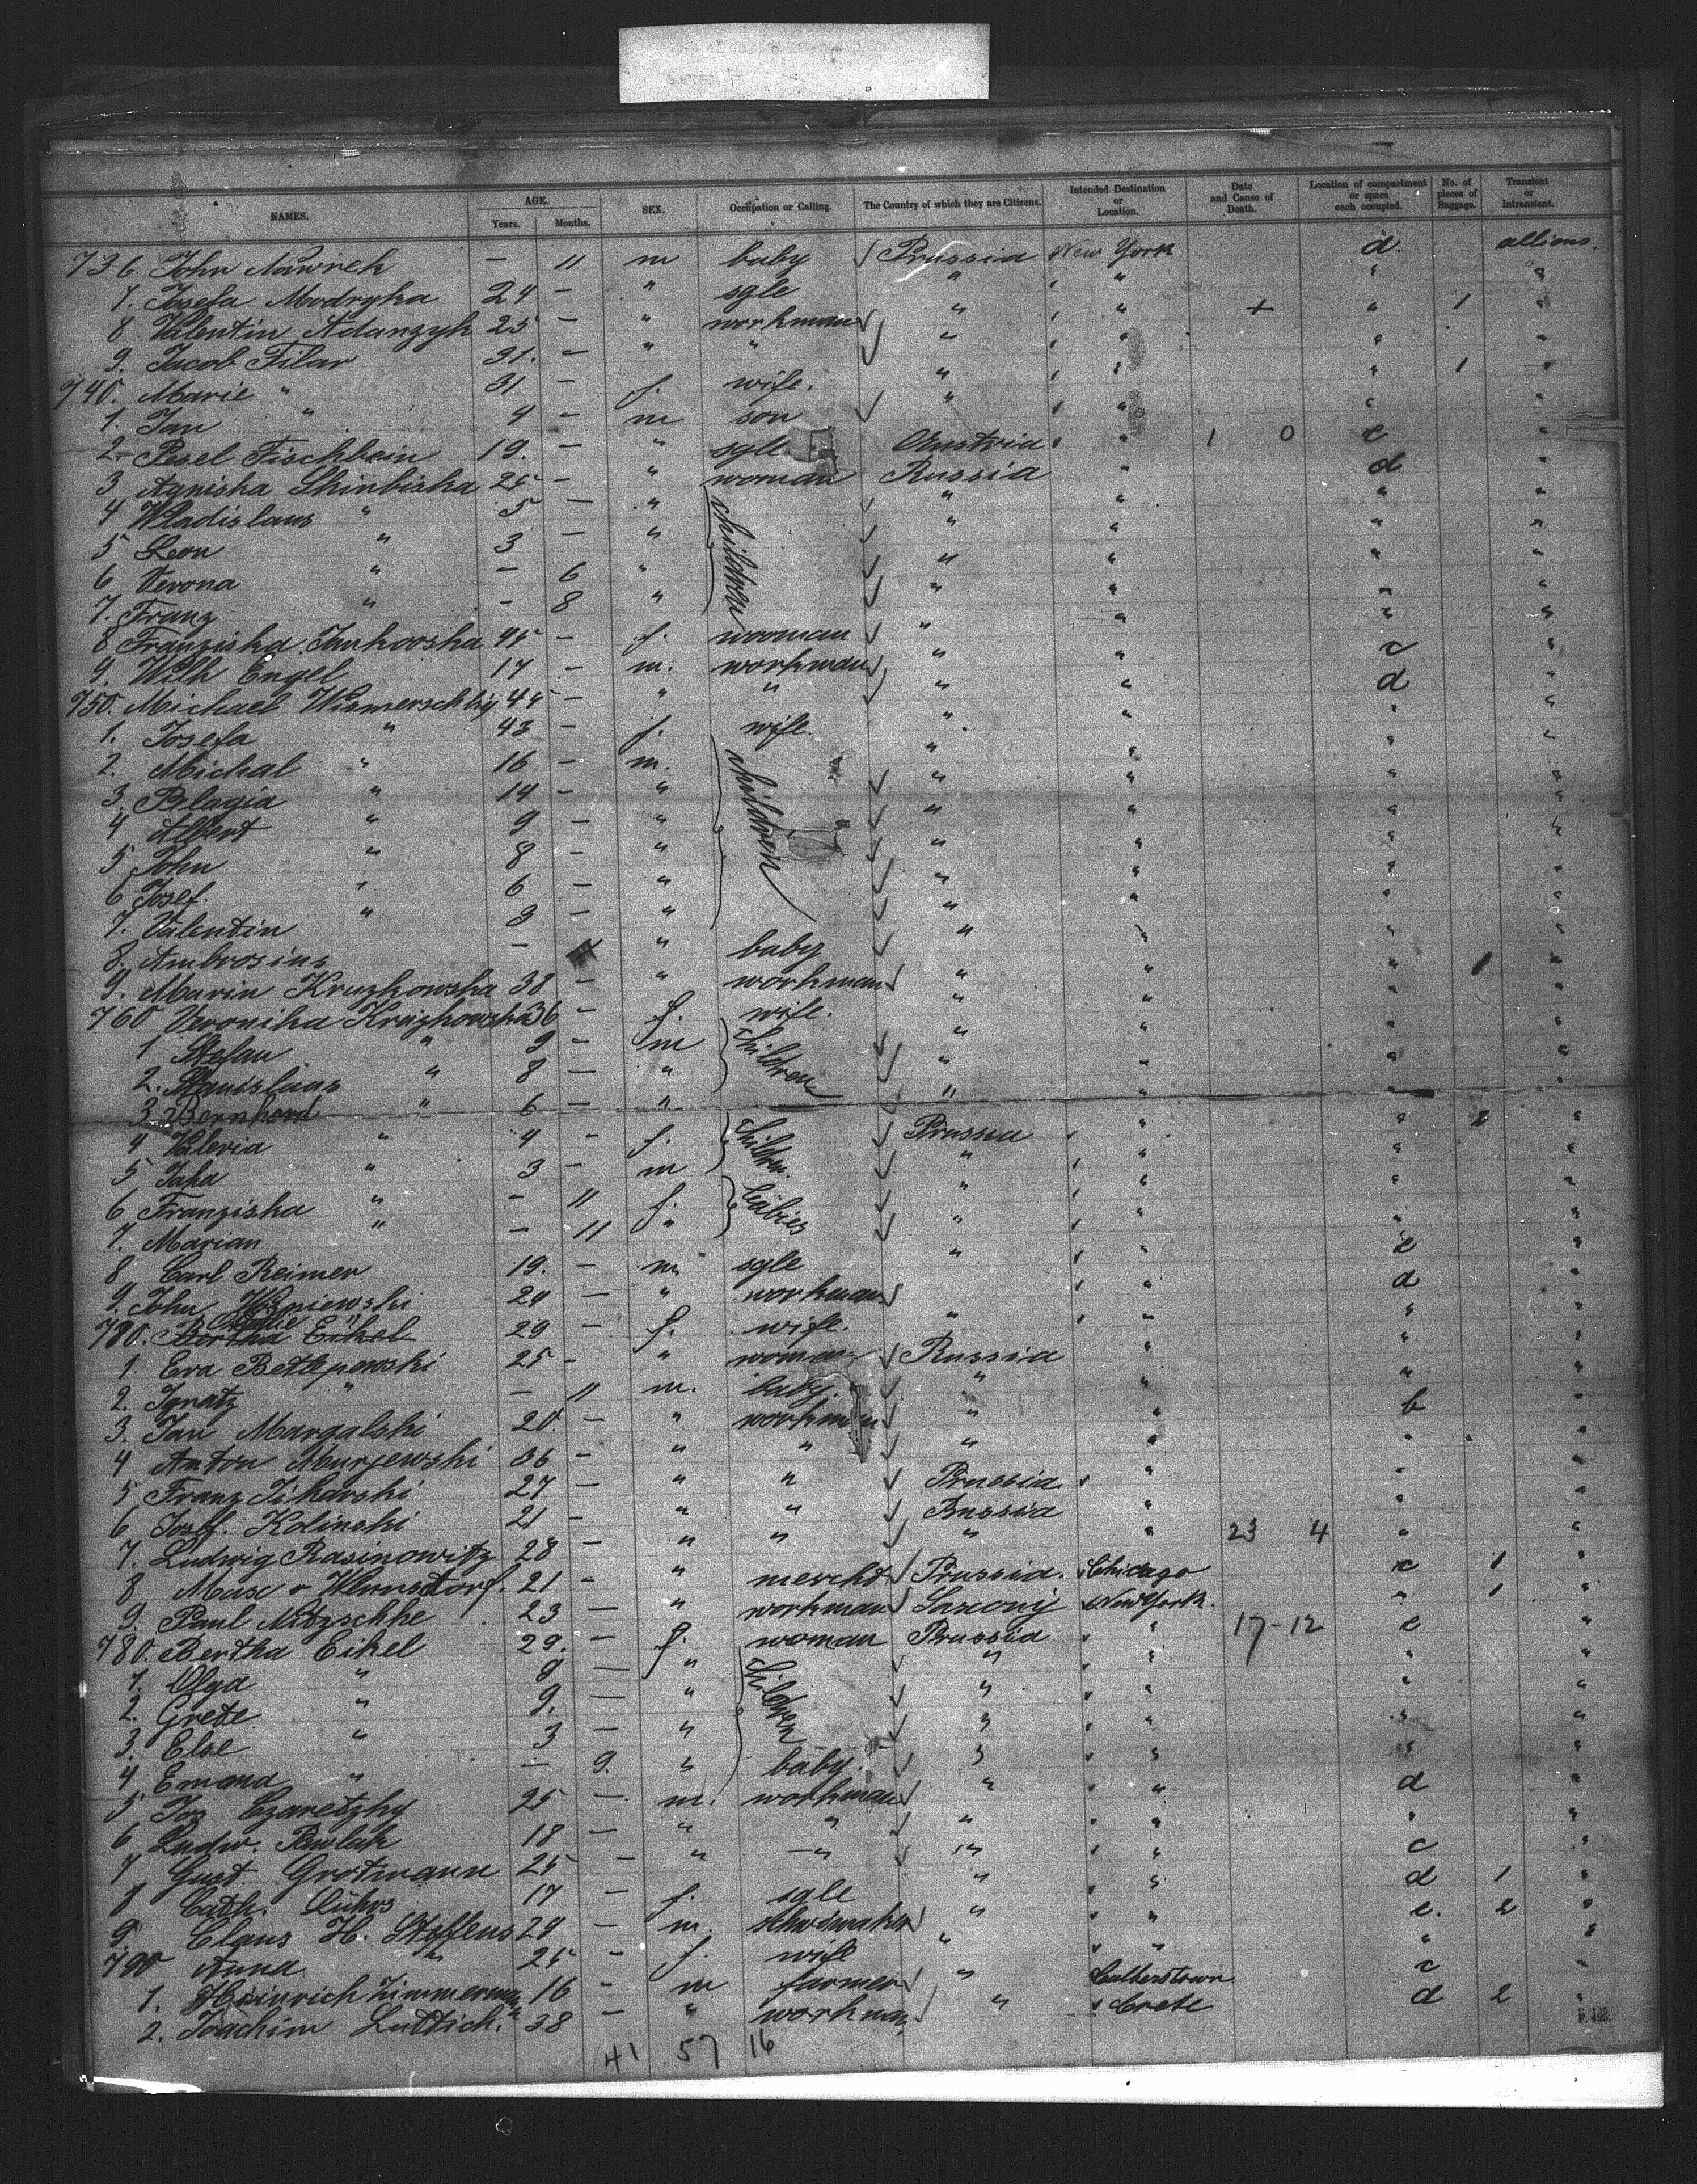 NAMES. AGE. Years. Months. SEX. Occupation or Calling. The Country of which they are Citizens. Intended Destination or Location. Date and Cause of Death. Location of compartment or space each occupied. No. of pieces of Baggage. Transient or Intransient.
736. John Nawrek — 11 m baby Prussia New York d. allions.
7. Josefa Modryka 24 — " sgle " " " "
8 Valentin Adanzyk 25 — " workman " " + " 1 "
9. Jacob Filar 31. — " " " " " "
740. Marie " 31 — f. wife. " " " 1 "
1. Jan " 4 — m son " " " "
2. Pesel Fischbein 19. — " sgle Austria " 1 0 e "
3 Agniska Skinbiska 25 — " woman Russia " d "
4 Wladislaus " 5 — " children " " " "
5 Leon " 3 — " " " " "
6 Verona " — 6 " " " " "
7. Franz " — 8 " " " " "
8 Franziska Jankooska 45 — f. wooman " " " "
9. Wilh Engel 17 — m. workman " " c "
750. Michael Wismerschky 44 — " " " " d "
1. Josefa " 43 — f. wife. " " " "
2. Michal " 16 — m. children " " " "
3. Pelagia " 14 — " " " " "
4 Albert " 9 — " " " " "
5 John " 8 — " " " " "
6 Josef. " 6 — " " " " "
7. Valentin " 3 — " " " " "
8. Ambrosius — " baby " " " "
9. Marin Kruzkowska 38 — " workman " " " 1 "
760 Veronika Kruzkowska 36 — f. wife. " " " "
1 Stefan " 9 — m children " " " "
2. Stanislaus " 8 — " " " " "
3 Bernhard " 6 — " " " " "
4 Valeria " 4 — f. children. Prussia " " 2 "
5 Jaka " 3 — m " " " "
6 Franziska " — 11 f. babies " " " "
7. Marian " — 11 " " " " "
8 Carl Reimer 19. — m sgle " " e "
9. John Wisniewski 24 — " workman " d "
780. Bertha Eikel 29 — f. wife. " " " "
1. Eva Bethgewski 25 — " woman Russia " " "
2. Ignatz " — 11 m. baby. " " " "
3. Jan Margalski 20. — " workman " " b "
4 Anton Murjewski 36 — " " " " " "
5 Franz Tikarski 27 — " " Prussia " " "
6 Josef. Kolinski 21 — " " Russia " " "
7. Ludwig Rasinowitz 28 — " " " " 23 4 " "
8 Max v Wernstorf. 21 — " mercht. Prussia. Chicago c 1 "
9. Paul Nitzschke 23 — " workman Saxony New York. " 1 "
780. Bertha Eikel 29. — f. woman Prussia " 17-12 e "
1. Olga " 9 — " children " " " "
2. Grete " 9. — " " " " "
3. Else " 3 — " " " " "
4 Emana " — 9. " baby. " " " "
5 Joz Czaretzky 25 — m. workman " " d "
6 Ludw. Pawlak 18 — " " " " " "
7 Gust. Grotmann 25 — " " " " c "
8 Cath. Lührs 17 — f. sgle " " d 1 "
9 Claus H. Steffens 24 — m. " " e. 2 "
790 Anna " 25 — f. wife " " " "
1. Heinrich Zimmermann 16 — m farmer " c "
2. Joachim Luttich. 38 — " workman " Crete d 2 "
41 57 16